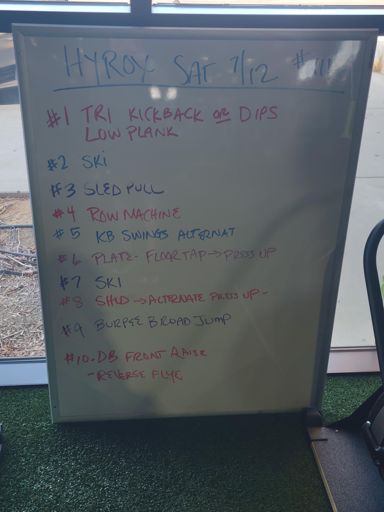 HYROX SAT 7/12 #111
#1 TRI KICKBACK OR DIPS
LOW PLANK
#2 SKI
#3 SLED PULL
#4 ROW MACHINE
#5 KB SWINGS ALTERNAT
#6 PLATE- FLOOR TAP → PRESS UP
#7 SKI
#8 → ALTERNATE PRESS UP -
#9 BURPEE BROAD JUMP
#10. DB FRONT RAISE
- REVERSE FLYE